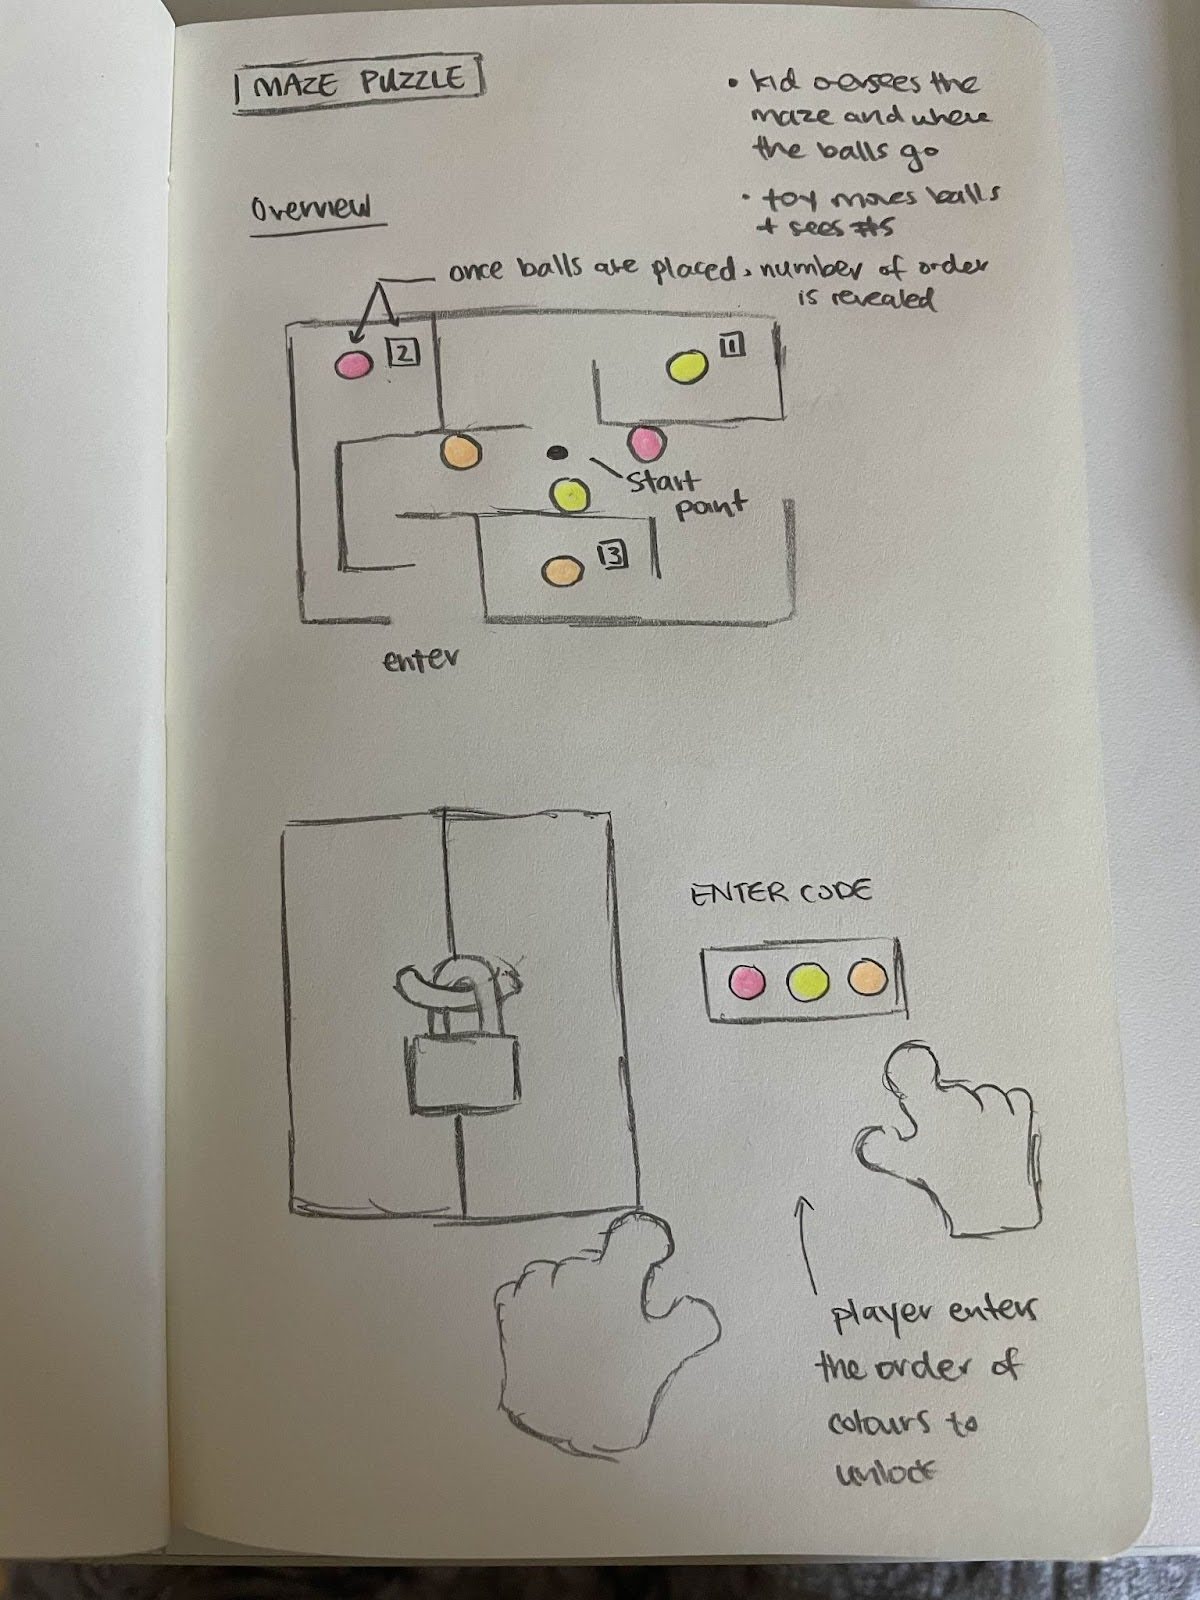 MAZE PUZZLE
• kid oversees the
maze and where
the balls go
• toy moves balls
+ sees #s
Overview
once balls are placed, number of order
is revealed
2
1
start
point
3
enter
ENTER CODE
player enters
the order of
colours to
unlock